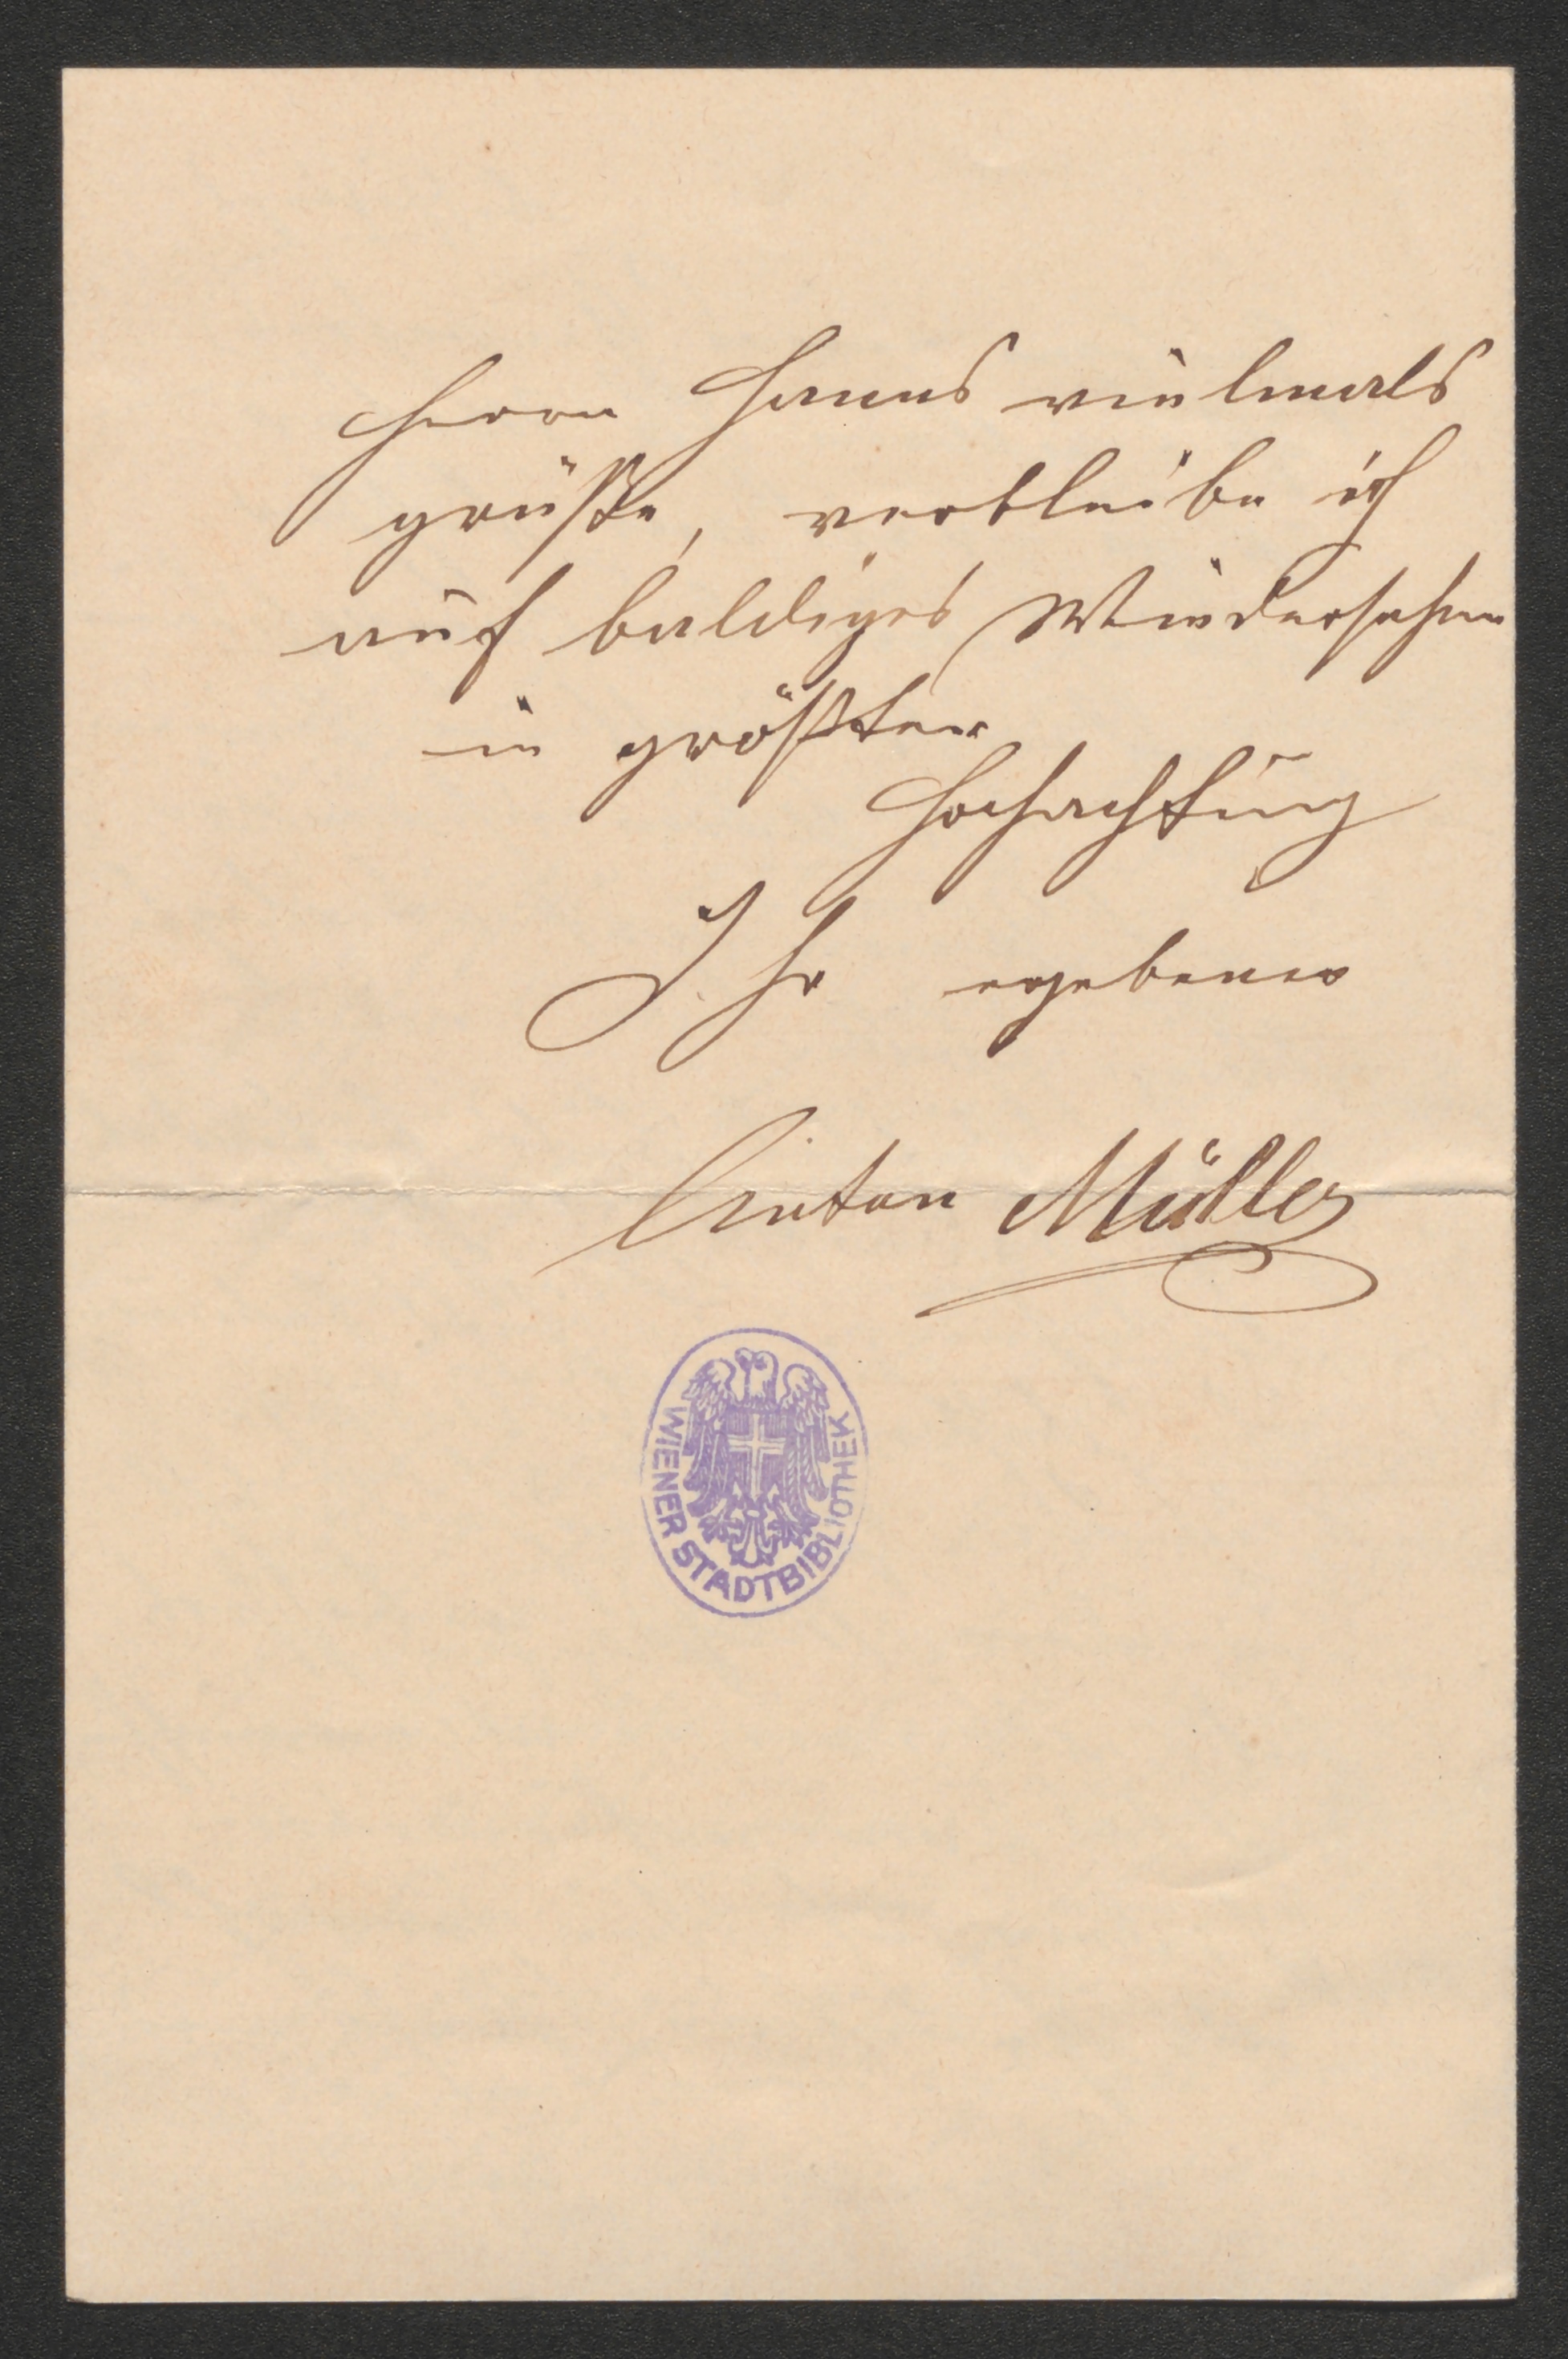 Herrn Hanns vielmals
grüße, verbleibe ich
auf baldiges Wiedersehen
in größter
Hochachtung
Ihr ergebener
Anton Müller
WIENER STADTBIBLIOTHEK